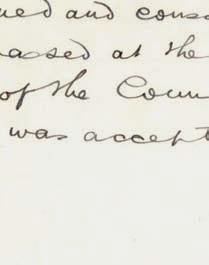 ued and cons
assed at the
of the Coun
was accept